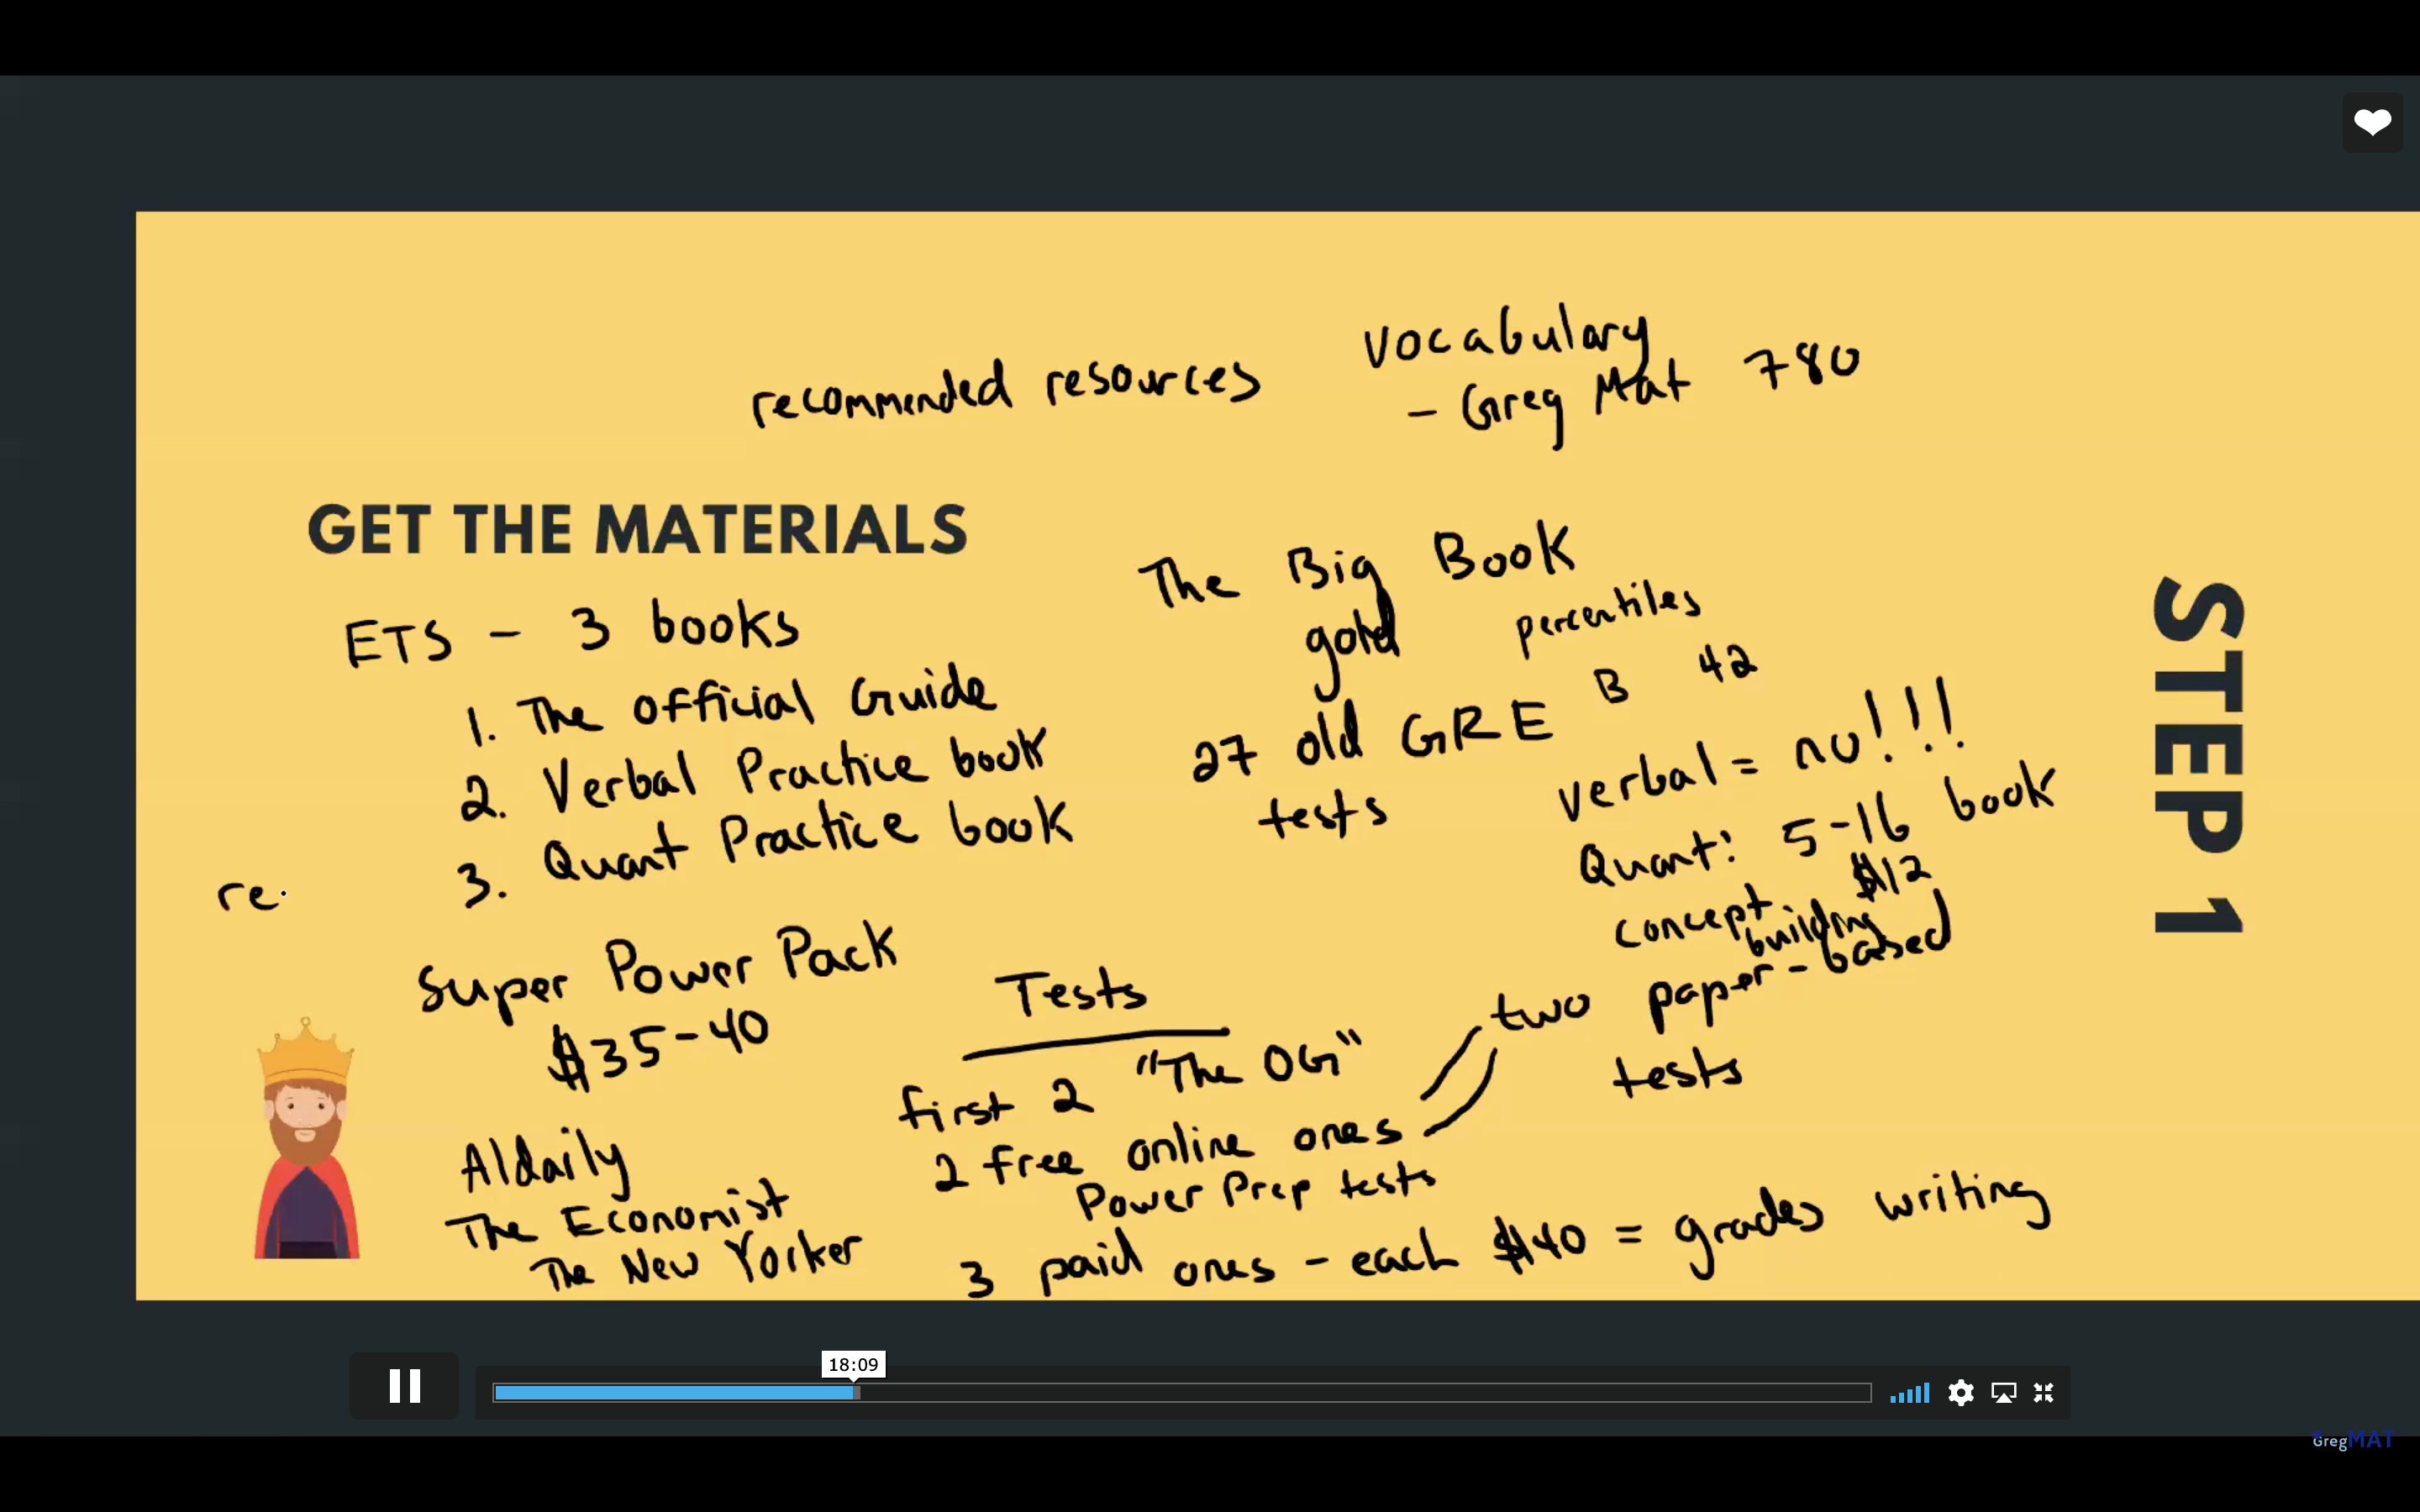 recommended resources
vocabulary
- Greg Mat 780
GET THE MATERIALS
ETS - 3 books
1. The Official Guide
2. Verbal Practice book
3. Quant Practice book
re
Super Power Pack
$35-40
Aldaily
The Economist
The New Yorker
The Big Book
gold
percentiles
B 42
27 old GRE
tests
verbal = no!!!
Quant: 5-16 book
$12
concept building
Tests
first 2 "The OG"
two paper-based
tests
2 free online ones
Power Prep tests
3 paid ones - each $40 = grades writing
STEP 1
18:09
GregMAT